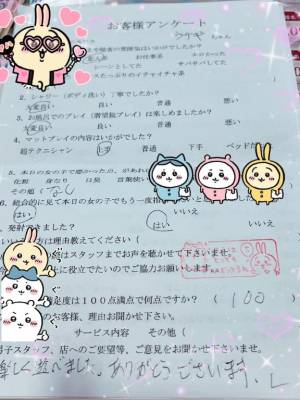 お客様アンケート
ちゃん
の雰囲気はいかがでしたか？
お仕事系 エロかった
シーンとしてた サバサバしてた
スたっぷりのイチャイチャ系
2. シャワー（ボディ洗い）丁寧でしたか？
大変良い 良い 普通 悪い
3. お風呂でのプレイ（潜望鏡プレイ）は楽しめましたか？
大変良い 良い 普通
4. マットプレイの内容はいかがでした？
超テクニシャン 上手 普通 下手 ベッドだ
5. 本日の女の子で悪かった点が
身なり 口臭
その他（なし
6. 総合的に見て本日の女の子でもう一度
はい いいえ
きましたか？
はい いいえ
は理由教えてください（
はスタッフまでお声を聴かせて下さいませ。
に役立てたいのでご協力お願いします。
足度は１００点満点で何点ですか？（ 100
のお客様、理由お聞かせ下さい。
サービス内容 その他（
男子スタッフ、店へのご要望等、ご意見をお聞かせ下さいませ。
楽しく遊べました。ありがとうございます。